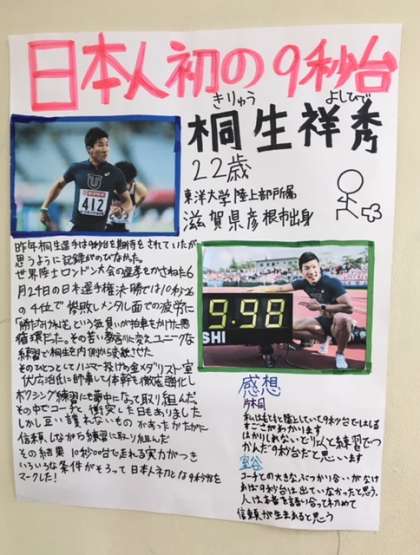 日本人初の9秒台
きりゅう よしひで
桐生祥秀
22歳
東洋大学陸上部所属
滋賀県彦根市出身
412
昨年桐生選手は9秒台を期待をされていたが
思うように記録がのびなんた。
世界陸上ロンドン大会の選考をかさねた6
月24日の日本選手権決勝では10秒26
の4位で惨敗しメンタル面での疲労に
「勝たなければ」という気負いが拍車をかけた悪
循環だった。その苦い教訓に変えユニークな
練習で桐生を内側から変えさせた
そのひとつとしてハンマー投げの金メダリスト室
伏広治氏に師事して体幹を徹底強化し
ボクシング練習にも夢中になって取り組んだ
その中でコーチと衝突した日もありました
しかし互い譲れないものがあったかたがに
信頼しながら練習に取り組んだ
その結果 10秒00台で走れる実力がつき
いろいろな条件がそろって日本人初となる9秒台を
マークした!
9.98
SHI
感想
私は走ると陸上していて9秒台ではしる
すごさがわかります
はかりしれないどりょくと練習でつ
かんだ9秒台だと思います
室谷
コーチとの大きなぶつかり合いがなけ
れば9秒台は出ていなかったと思う。
人は本音を語り合ってわじめて
信頼が生まれると思う